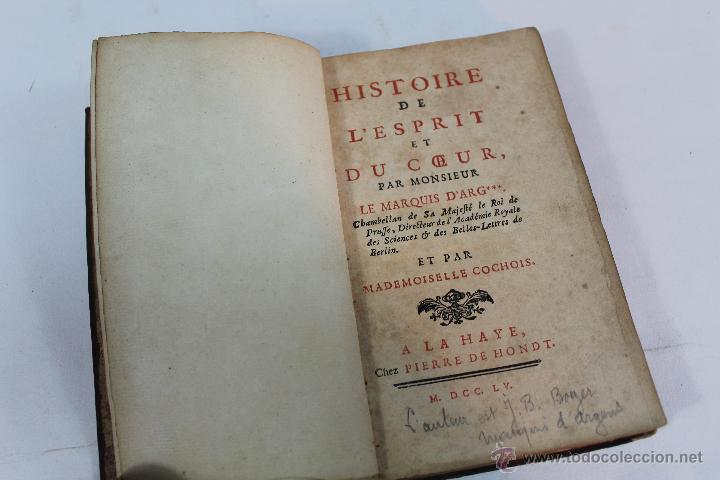 HISTOIRE
DE
L'ESPRIT
ET
DU CŒUR,
PAR MONSIEUR
LE MARQUIS D'ARG***,
Chambellan de Sa Majesté le Roi de
Prusse, Directeur de l'Académie Royale
des Sciences & des Belles-Lettres de
Berlin.
ET PAR
MADEMOISELLE COCHOIS.
A LA HAYE,
Chez PIERRE DE HONDT.
M. DCC. LV.
L'auteur est J. B. Boyer
marquis d'Argens
todocoleccion
www.todocoleccion.net